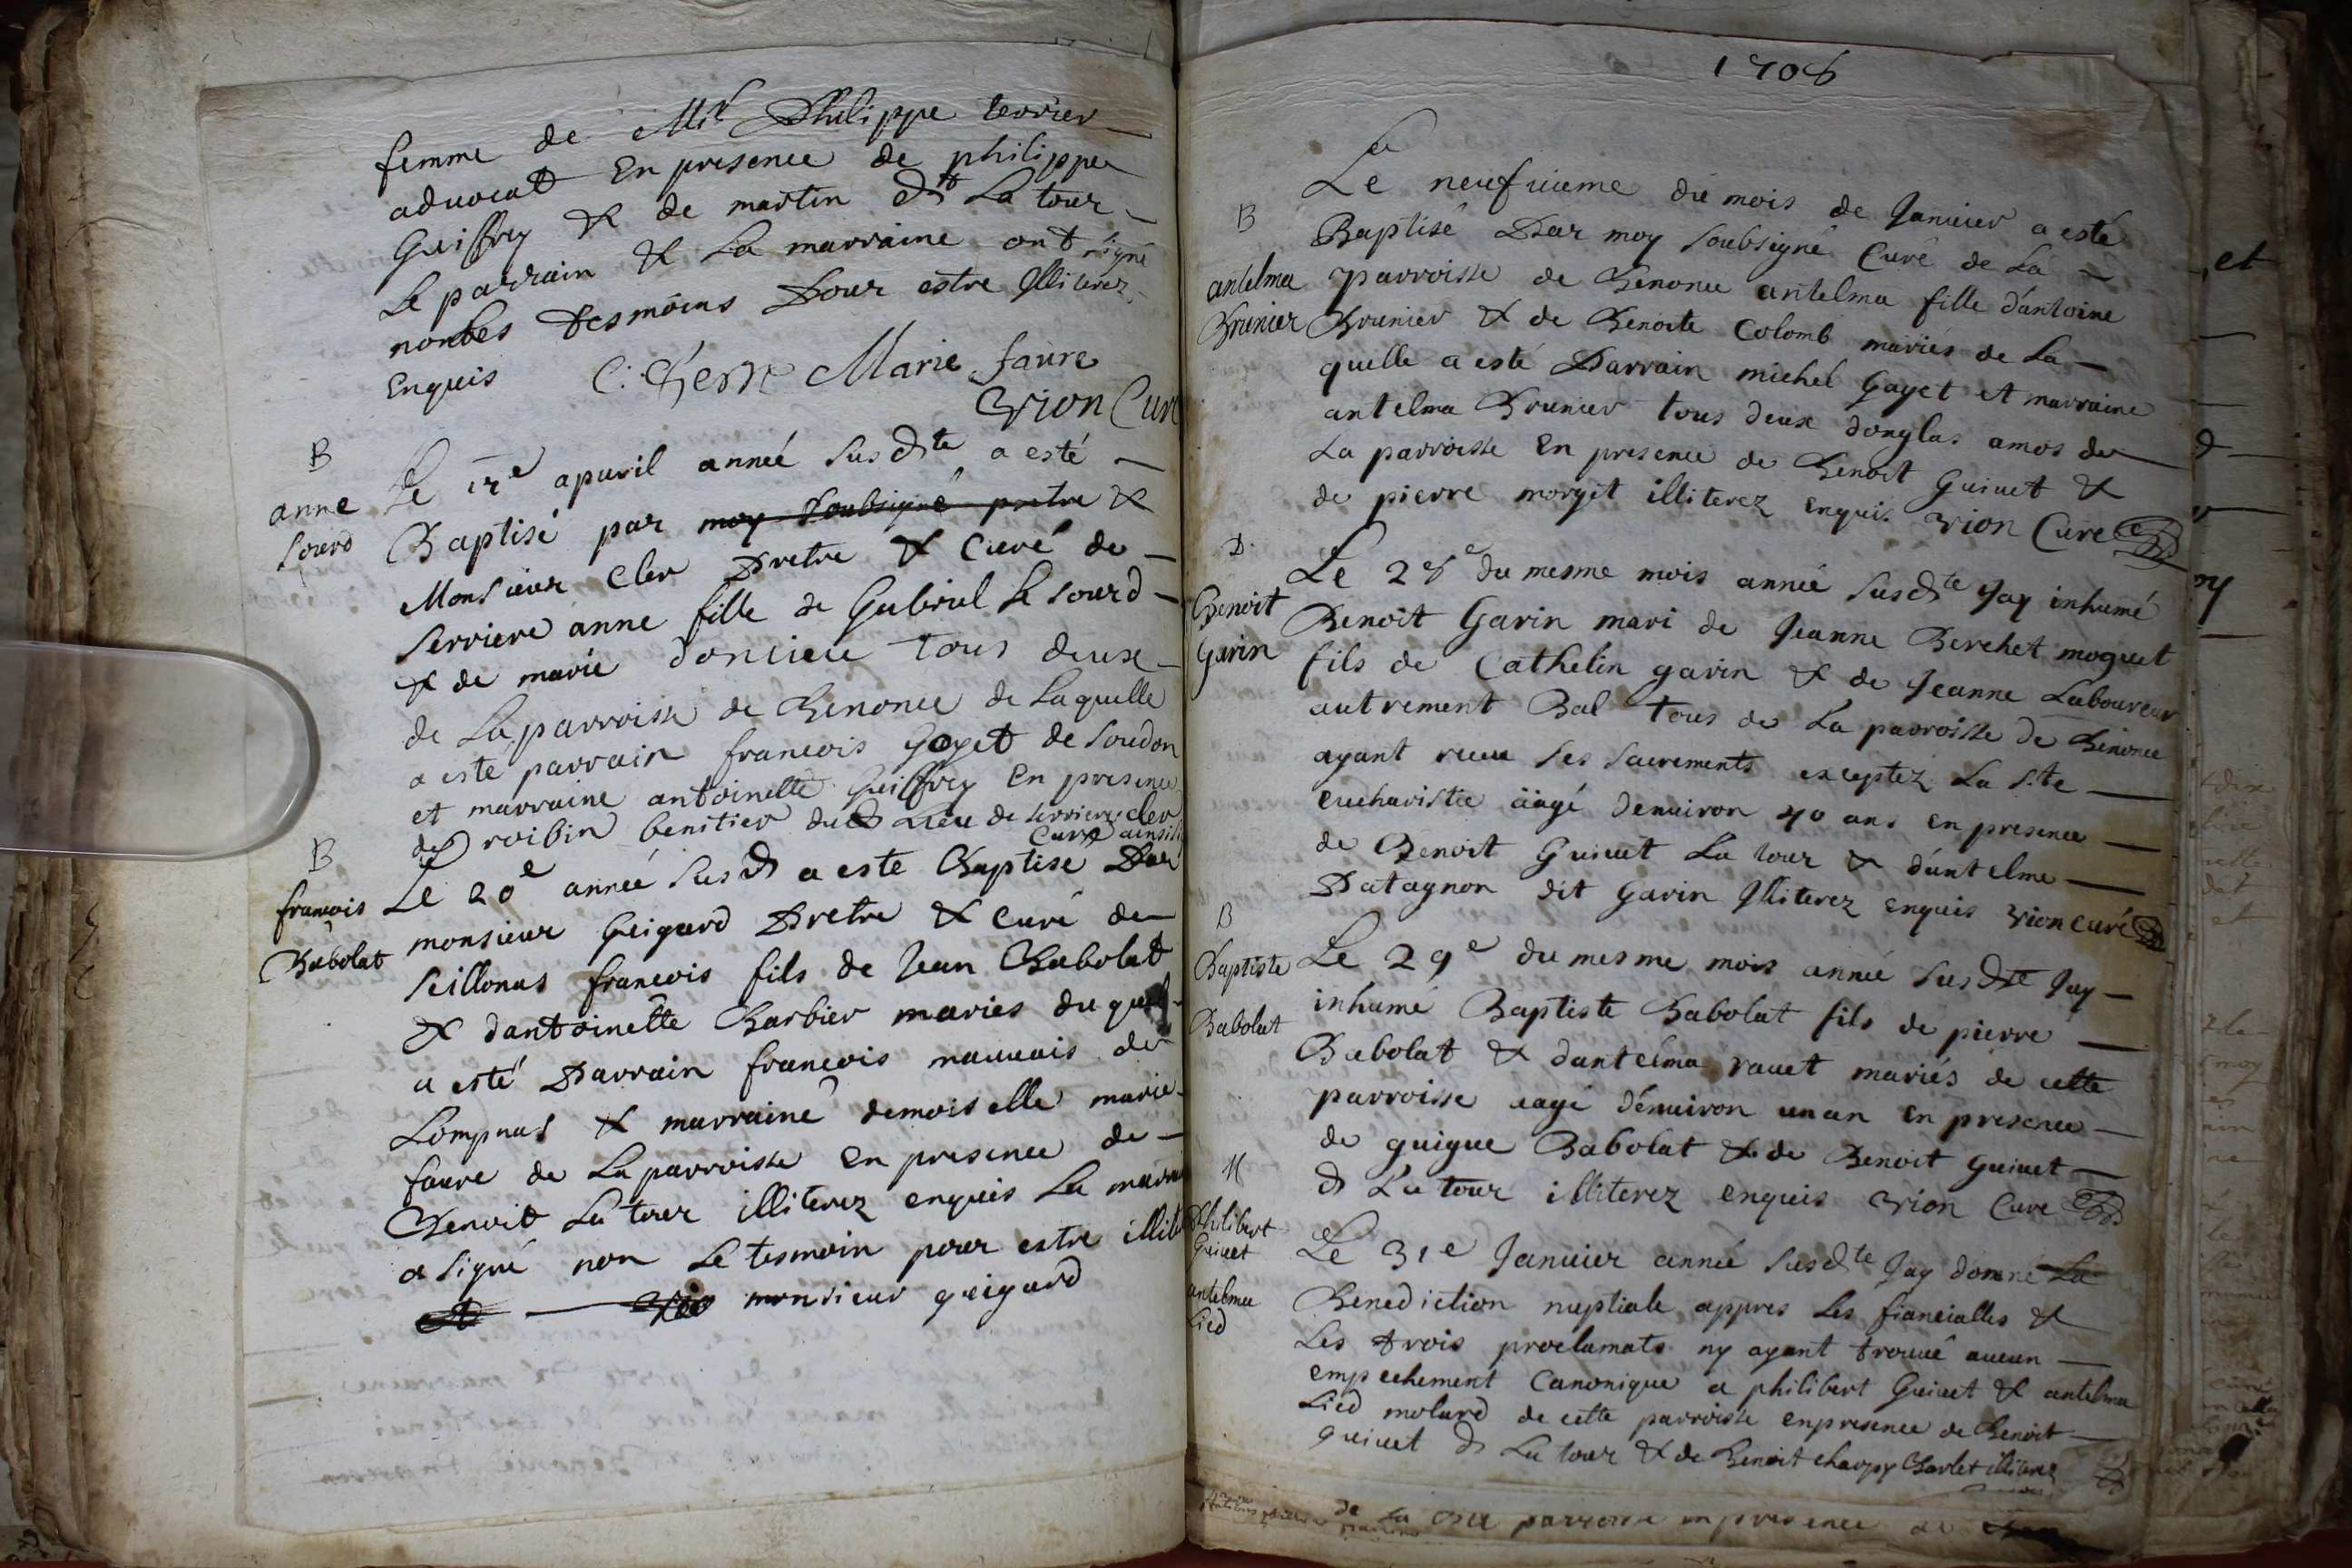 femme de Mr Philippe terrier
advocat En presence de philippe
Guiffrey & de martin dt La tour
Le parrain & La marraine ont signé
non les tesmoins Pour estre Illiterez
Enquis Marie faure
Vion Curé
B
anne
sourd
Le apuril année susdte a esté
Baptisé par moy soubsigné pretre &
Monsieur Cler Pretre & Curé de
Serriere anne fille de Gabriel Le sourd
& de marie doncieu tous deux
de La parroisse de Benonce de Laquelle
a este parrain francois Goyet de soudon
et marraine antoinette Guiffrey En presence
de roibin benitier dudt Lieu de serriere cler
Curé ainsi
B
francois
Babolat
Le 20e année susdt a este Baptisé Par
monsieur Guigard Pretre & curé de
seillonas francois fils de Jean Babolat
& dantoinette Barbier maries du quel
a esté Parrain francois mauuais de
Lompnas & marraine demoiselle marie
faure de La parroisse En presence de
Benoit La tour illiterez enquis La marr
a signé non Le tesmoin pour estre illite
monsieur guigard
1706
Le neufuieme du mois de Januier a esté
B
Baptisé Par moy soubsigné Curé de La
antelma
parroisse de Benonce antelma fille d'antoine
Brunier
Brunier & de Benoite Colomb mariés de La
quelle a esté Parrain michel Gayet et marraine
antelma Brunier tous deux donglas amos de
La parroisse En presence de Benoit Guiuet &
de pierre morgit illiterez enquis Vion Curé
D
Benoit
Garin
Le 28e du mesme mois année susdte Jay inhumé
Benoit Garin mari de Jeanne Berchet moguet
fils de Cathelin garin & de Jeanne Laboureur
autrement Bal tous de La parroisse de Benonce
ayant receu ses sacrements exceptez La Ste
eucharistie aägé denuiron 40 ans en presence
de Benoit Guiuet La tour & d'antelme
Patagnon dit Garin Illiterez enquis Vion curé
B
Baptiste
Babolat
Le 29e du mesme mois année susdte Jay
inhumé Baptiste Babolat fils de pierre
Babolat & dantelma rauet mariés de cette
parroisse aagé dénuiron un an en presence
de guigue Babolat & de Benoit Guiuet
dt La tour illiterez enquis Vion Curé
M
Philibert
Guiuet
antelma
Lied
Le 31e Januier année susdte Jay donné La
Benediction nuptiale appres Les fiancialles &
Les trois proclamats ny ayant trouué aucun
empechement Canonique a philibert Guiuet & antelma
Lied molard de cette parroisse enpresence de Benoit
guiuet dt La tour & de Benoit charpy Charlet illiterez
de La parroisse en presence de